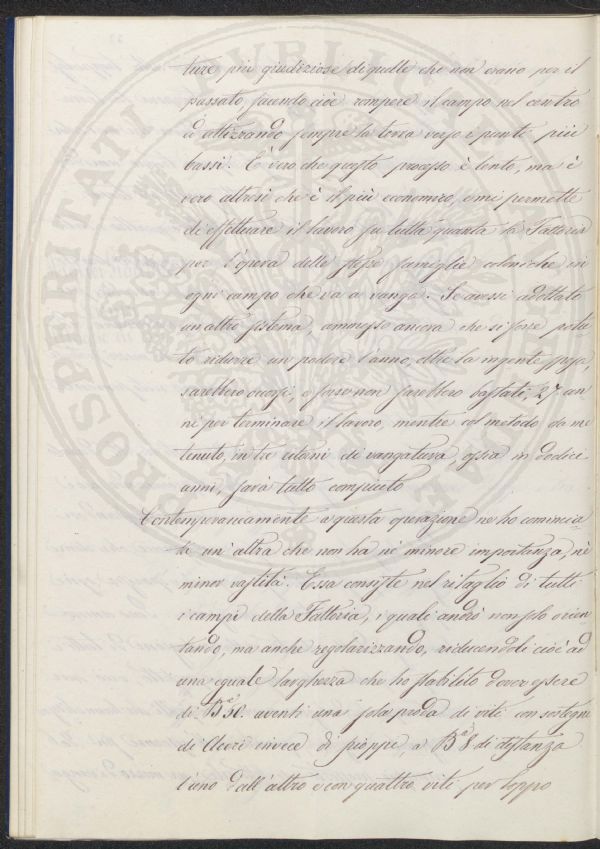 ture più giudiziose di quelle che non erano per il
passato facendo cioè rompere il campo nel centro
ed attizzando sempre la terra verso i punti più
bassi. È vero che questo processo è lento, ma è
vero altresì che è il più economico, e mi permette
di effettuare il lavoro su tutta quanta la Fattoria
per l'opera delle stesse famiglie coloniche in
ogni campo che va a vanga. Se avessi adottato
un altro sistema, ammesso ancora che si fosse potu
to ridurre un podere l'anno, oltre la ingente spesa,
sarebbero occorsi, e forse non sarebbero bastati, 27 an
ni per terminare il lavoro, mentre col metodo da me
tenuto, in tre di vangatura, ossia in dodici
anni, sarà tutto compiuto
Contemporaneamente a questa operazione ne ho comincia
ta un'altra che non ha nè minore importanza, nè
minor vastità. Essa consiste nel ritaglio di tutti
i campi della Fattoria, i quali andrò non solo orien
tando, ma anche regolarizzando, riducendoli cioè ad
una eguale larghezza che ho stabilito dover essere
di Bª 30. aventi una sola proda di viti con sostegni
di Aceri invece di pioppi, a Bª 8 di distanza
l'uno dall'altro e con quattro viti per loppo
PROSPERITATI PUBLICAE